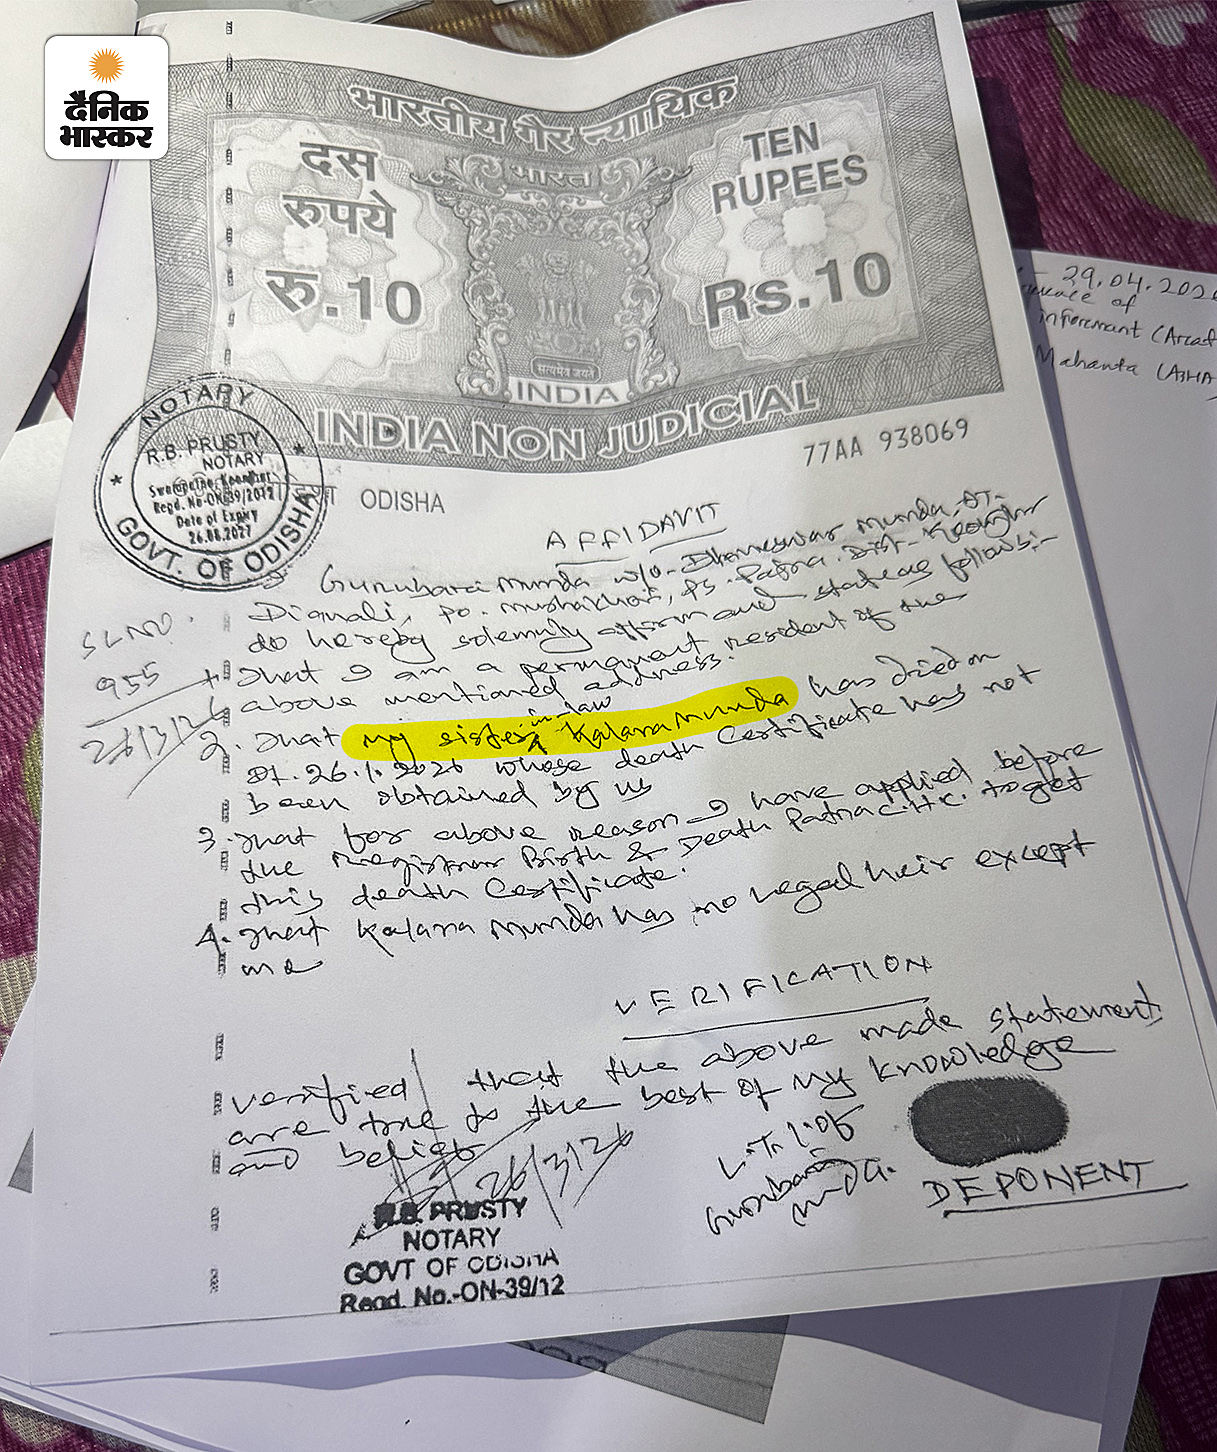 दैनिक
भास्कर
भारतीय गैर न्यायिक
दस
रुपये
रु.10
भारत
TEN
RUPEES
Rs.10
सत्यमेव जयते
INDIA
INDIA NON JUDICIAL
77AA 938069
ODISHA
NOTARY
R.B. PRUSTY
NOTARY
Regd. No-ON-39/2012
Date of Expiry
26.08.2027
GOVT. OF ODISHA
29.04.2026
of
informant
Mahanta
SL NO.
955
26/3/26
AFFIDAVIT
Gurubara Munda w/o- Dhaneswar Munda, At-
Dianali, Po. Mushakhori, Ps. Patna. Dist- Keonjhar
do hereby solemnly affirm and state as follows:-
1. That I am a permanent resident of the
above mentioned address.
2. That my sister in-law Kalara Munda has died on
Dt. 26.1.2026 whose death Certificate has not
been obtained by us
3. That for above reason I have applied before
the Registrar Birth & Death Patna CHC. to get
this death Certificate.
4. That Kalara Munda has no legal heir except
me
VERIFICATION
verified that the above made statement
are true to the best of my knowledge
and belief
26/3/26
R.B. PRUSTY
NOTARY
GOVT OF ODISHA
Regd. No.-ON-39/12
L.T.I. of
Gurubara
Munda.
DEPONENT